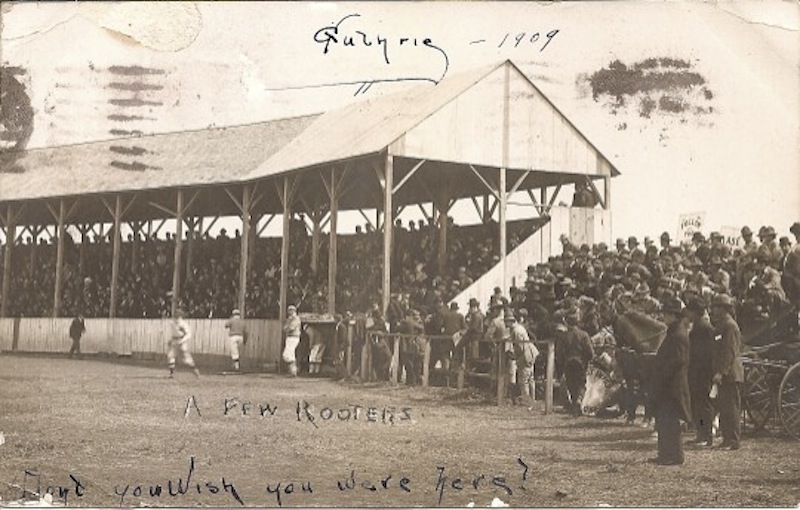 Guthrie - 1909
A FEW ROOTERS.
Dont you Wish you were here?